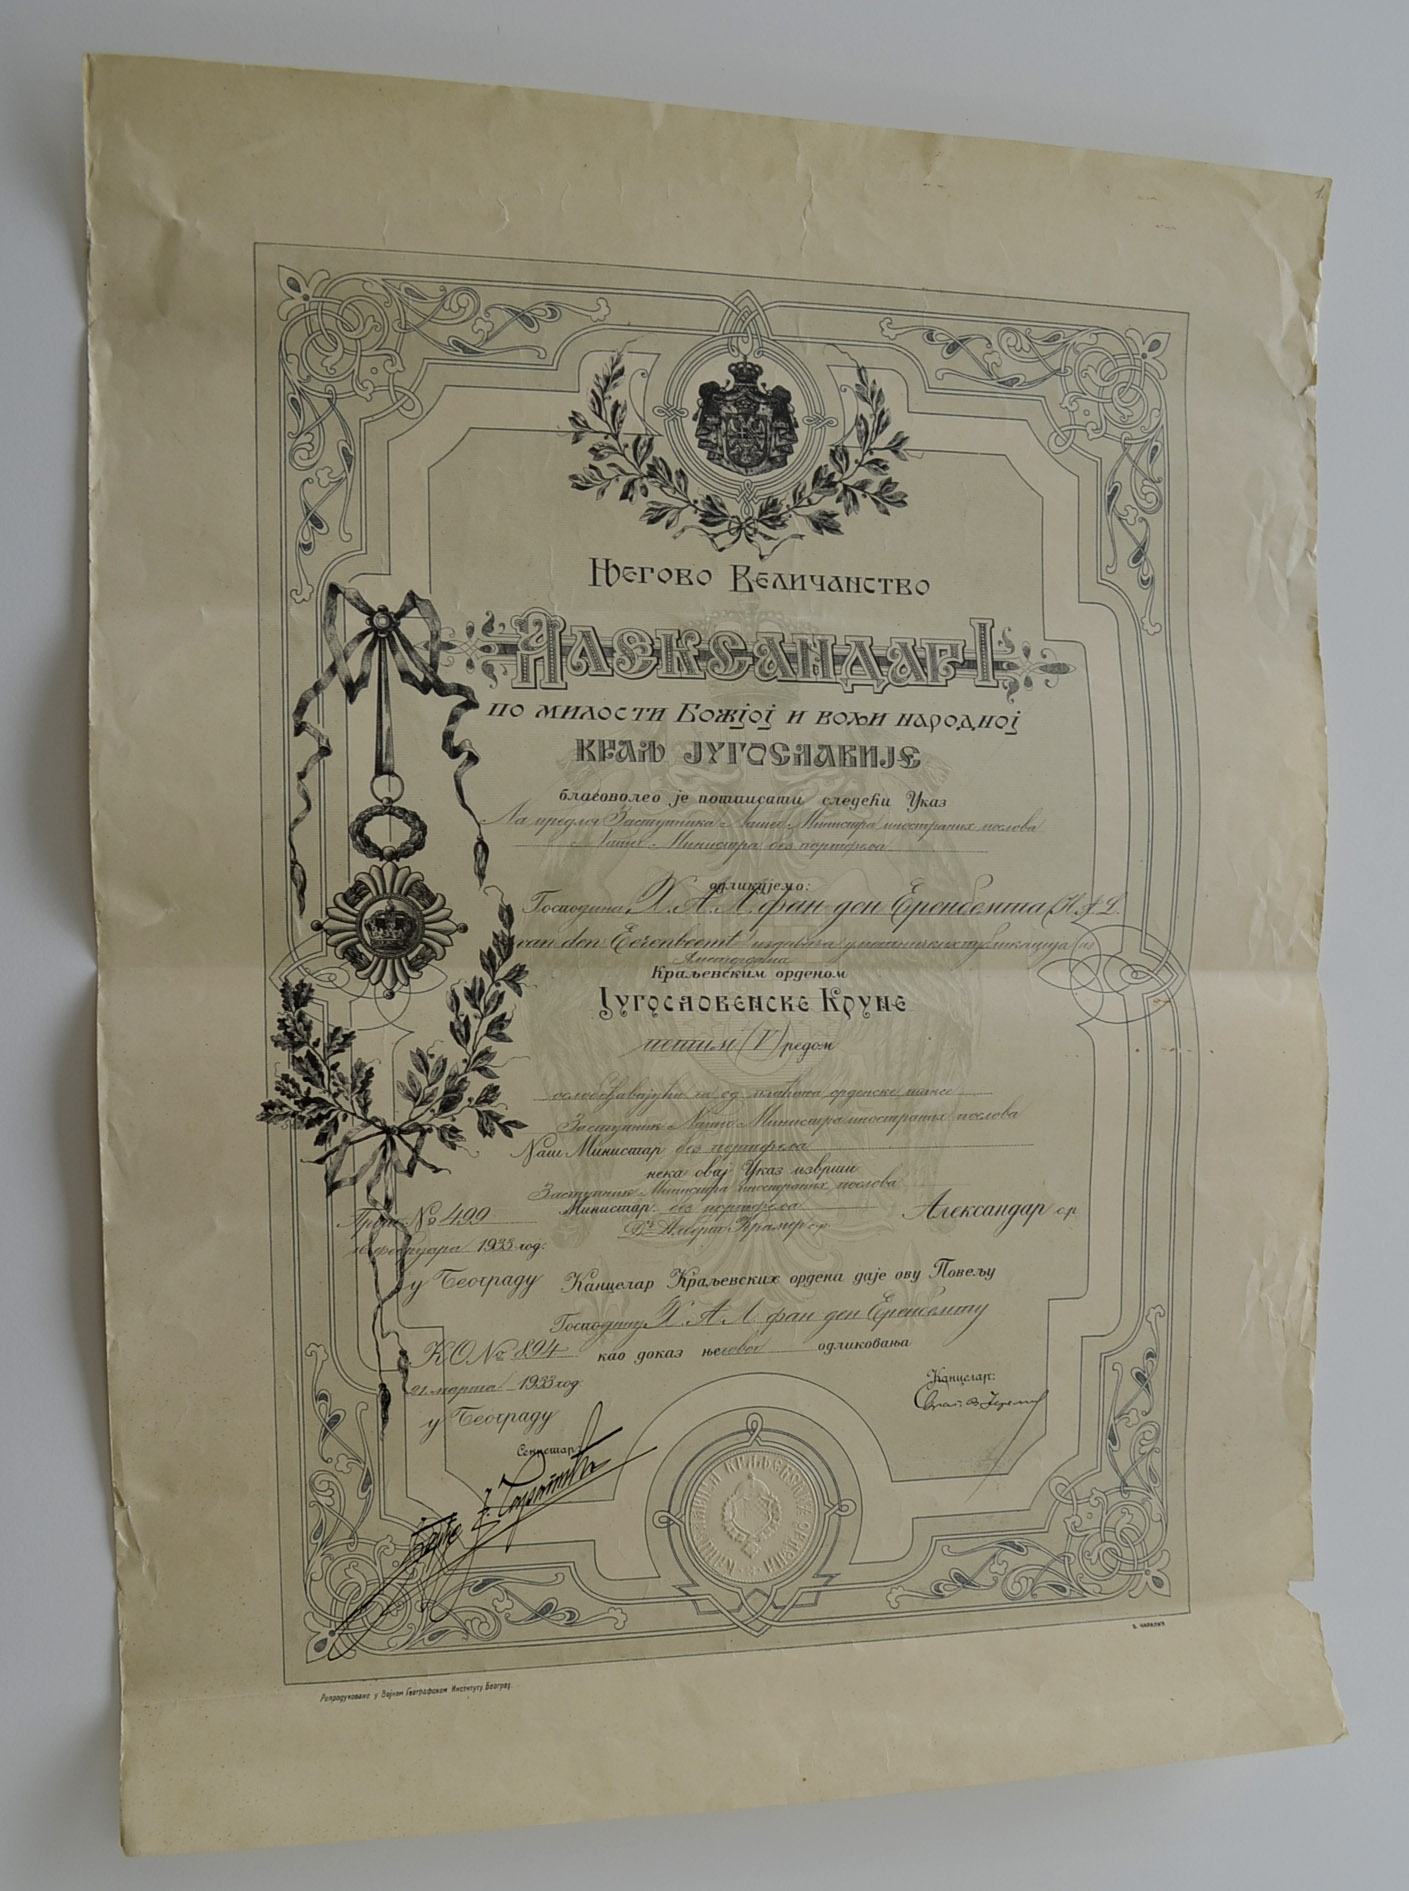 1.
Његово Величанство
Александар I
по милости Божјој и вољи народној
Краљ Југославије
благоволео је потписати следећи Указ
На предлог Заступника Нашег Министра иностраних послова
Нашег Министра без портфеља
одликујемо:
Господина Х. А. Л. фан ден Еренбемта (H. A. L.
van den Eerenbeemt издавача уметничких публикација из
Амстердама
Краљевским орденом
Југословенске Круне
петим (V) редом
ослобођавајући га од плаћања орденске таксе
Заступник Нашег Министра иностраних послова
Наш Министар без портфеља
нека овај Указ изврши
Заступник Министра иностраних послова
Министар без портфеља
Др Алберт Крамер ср
Александар ср
№ 499
фебруара 1933 год.
у Београду
Канцелар Краљевских ордена даје ову Повељу
Господину Х. А. Л. фан ден Еренбемту
КО № 894
као доказ његовог одликовања
21. марта 1933 год.
у Београду
Канцелар:
Секретар:
В. ЧАРАПИЋ
Репродуковано у Војном Географском Институту Београд.